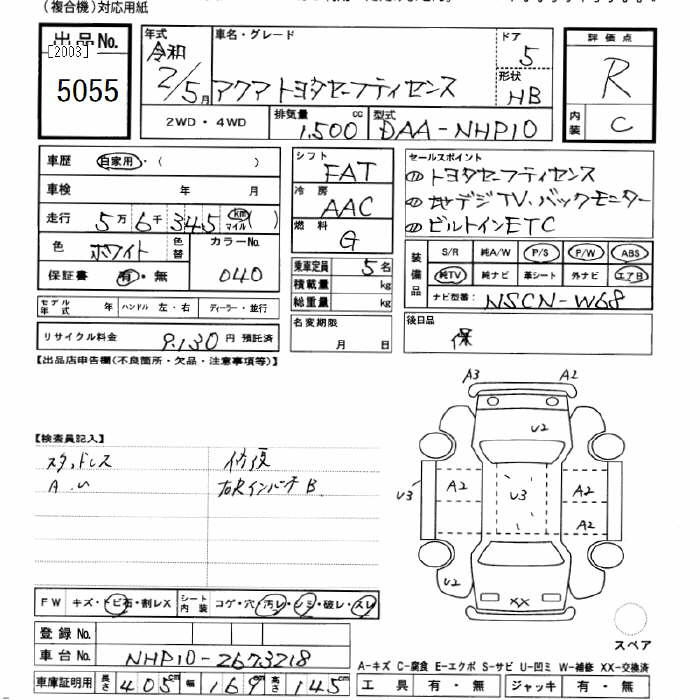 (複合機)対応用紙
出品No. [2003] 5055
年式 令和 2/5月
車名・グレード アクア トヨタセーフティセンス
ドア 5
形状 HB
2WD・4WD 排気量 1,500 cc 型式 DAA-NHP10
評価点 R
内装 C
車歴 自家用・( )
車検 年 月
走行 5万6千345 km マイル ( )
色 ホワイト 色替 カラーNo. 040
保証書 有・無
モデル年式 年 ハンドル 左・右 ディーラー・並行
リサイクル料金 9,130円 預託済
シフト FAT
冷房 AAC
燃料 G
乗車定員 5名
積載量 kg
総重量 kg
名変期限 月 日
セールスポイント
① トヨタセーフティセンス
② 地デジTV、バックモニター
③ ビルトインETC
装備品 S/R 純A/W P/S P/W ABS
純TV 純ナビ 革シート 外ナビ エアB
ナビ型番: NSCN-W68
後日品 保
【出品店申告欄(不良箇所・欠品・注意事項等)】
【検査員記入】
スタッドレス 修復
右クォインパーチ B
A3 A2
U2
U3 A2 U3 A2
A2
U2
XX
スペア
FW キズ・トビ石・割レX シート内装 コゲ・穴・汚レ・シミ・破レ・スレ
登録No.
車台No. NHP10-2673218
車庫証明用 長さ 405cm 幅 169cm 高さ 145cm
A-キズ C-腐食 E-エクボ S-サビ U-凹ミ W-補修 XX-交換済
工具 有・無 ジャッキ 有・無